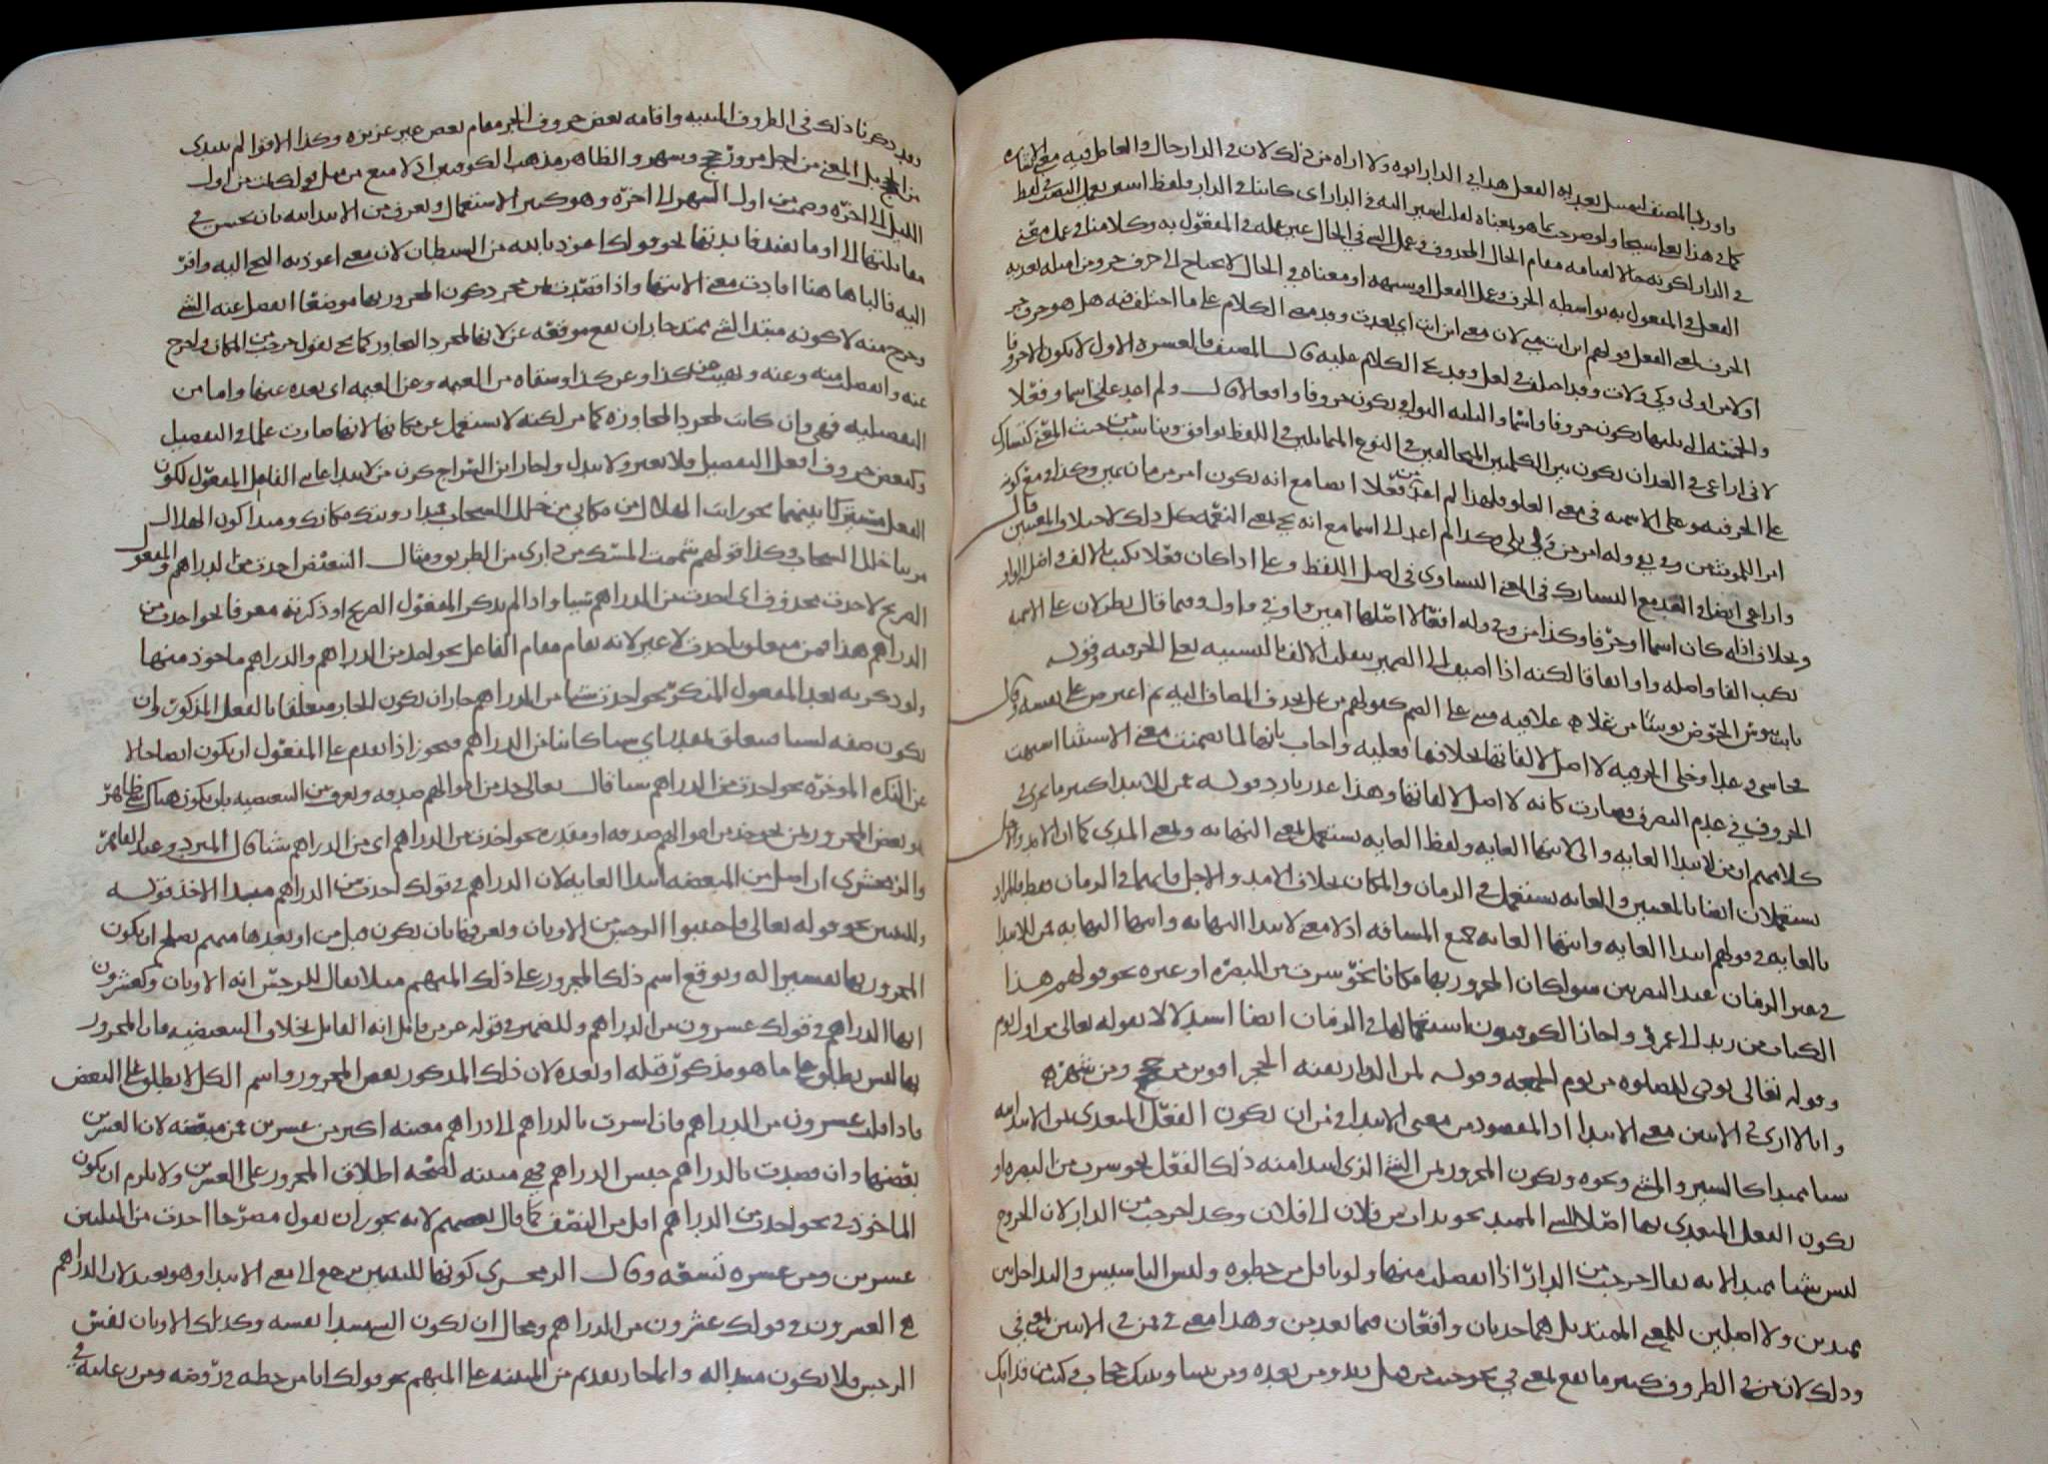 واورد المصنف لبعد به الفعل هذا في الدار ابوه ولا اراه من ذلك لان في الدار حال والعامل فيه معنى الاشاره
كما في هذا بعلي شيخا ولو صرحت بما هو بمعناه لقلت اشير اليه في الدار اي كائنا في الدار فلفظ اشير يعمل النصب في لفظ
في الدار لكونه حالا لقيامه مقام الحال المحذوف وعمل الشي في الحال غير عمله في المفعول به وكلامنا في عمل معنى
الفعل في المفعول به بواسطه الحرف وعمل الفعل او شبهه او معناه في الحال لا يحتاج الى حرف جر ومن امثله تعديه
الحرف لمعنى الفعل قولهم اين انت مني لان معنى اين انت اي بعدت وقد مضى الكلام على ما اختلف فيه هل هو حرف جر
اولا من لولى وكي ولات وقد اختلف في لعل وقد مضى الكلام عليه قال المصنف فالعشره الاول لا يكون الا حروفا
والخمسه التي تليها تكون حروفا واسما والثلثه البواقي تكون حروفا وافعالا قال ولم اعد على اسما وفعلا
لاني اراعي في العد ان تكون بين الكلمتين المتخالفتين في النوع المتماثلتين في اللفظ توافق وتناسب من حيث المعنى كتشارك
على الحرفيه وعلى الاسميه في معنى العلو فلهذا لم اعد من فعلا ايضا مع انه يكون امر من مان يمين وكذا في مع كونه
امرا للمونثه من وفي يفي وله امر من ولي يلي وكذا لم اعد الى اسما مع انه يجي بمعنى النعمه كل ذلك لاختلاف المعنيين قال
واراعي ايضا في العد مع التشارك في المعنى التساوي في اصل اللفظ وعلى اذا كان فعلا تكتب بالالف واصل الواو
وبخلاف اذا كان اسما او حرفا وكذا من وفي وله افعالا اصلها امين واوفي واولي وفيما قال نظر لان على الاسميه
تكتب الفا واصله واو اتفاقا لكنه اذا اضيف الى الضمير ينقلب الالف يا لتشبيه بعلى الحرفيه وقوله
باتت تنوش الحوض نوشا من علا علا فيه مبني على الضم كقولهم من عل بحذف المضاف اليه ثم اعترض على نفسه وقال
حاشى وعدا وخلى الحرفيه لا اصل لالفاتها بخلافها فعليه واجاب بانها لما تضمنت معنى الاستثنا اشبهت
الحروف في عدم التصرف فصارت كانه لا اصل لالفاتها وهذا عذر بارد قوله فمن للابتدا كثيرا ما يجري في
كلامهم ان من لابتدا الغايه والى لانتها الغايه ولفظ الغايه يستعمل بمعنى النهايه وبمعنى المدى كما ان الامد والاجل
يستعملان ايضا بالمعنيين والغايه تستعمل في الزمان والمكان بخلاف الامد والاجل فانهما في الزمان فقط والمراد
بالغايه في قولهم ابتدا الغايه وانتها الغايه جميع المسافه اذ لا معنى لابتدا النهايه وانتها النهايه فمن للابتدا
في غير الزمان عند البصريين سوا كان المجرور بها مكانا نحو سرت من البصره او غيره نحو قولهم هذا
الكتاب من زيد الى عمرو واجاز الكوفيون استعمالها في الزمان ايضا استدلالا بقوله تعالى من اول يوم
وقوله تعالى نودي للصلوه من يوم الجمعه وقوله لمن الديار بقنه الحجر اقوين من حجج ومن شهر
وانا لا ارى في الاثنين معنى الابتدا اذ المقصود من معنى الابتدا في من ان يكون الفعل المتعدي بمن الابتدائيه
شيا ممتدا كالسير والمشي ونحوه ويكون المجرور بمن الشي الذي ابتدا منه ذلك الفعل نحو سرت من البصره او
يكون الفعل المتعدي بها اصلا للشي الممتد نحو تبرات من فلان الى فلان وكذا خرجت من الدار لان الخروج
ليس شيا ممتدا لانه يقال خرجت من الدار اذا انفصلت منها ولو باقل من خطوه وليس التاسيس والندا حدثين
ممتدين ولا اصلين للمعنى الممتد بل هما حدثان واقعان فيما بعد من وهذا معنى في فمن في الاثنين بمعنى في
وذلك لان من في الظروف كثيرا ما تقع بمعنى في نحو جيت من قبل زيد ومن بعده ومن بيننا وبينك حجاب وكنت من قدامك
وقد ذكرنا ذلك في الظروف المبنيه واقامه بعض حروف الجر مقام بعض غير عزيزه وكذا الاقوا لم يبتدي
من الحجج بل المعنى من اجل مرور حجج وشهر والظاهر مذهب الكوفيين اذ لا منع من مثل قولك نمت من اول
الليل الى اخره وصمت من اول الشهر الى اخره وهو كثير الاستعمال وتعرف من الابتدائيه بان يحسن في
مقابلتها الى او ما يفيد فايدتها نحو قولك اعوذ بالله من الشيطان لان معنى اعوذ به التجي اليه وافر
اليه فالبا هاهنا افادت معنى الانتها واذا قصدت بمن مجرد كون المجرور بها موضعا انفصل عنه الشي
وخرج منه لا كونه مبتدا لشي ممتد جاز ان يقع موقعه عن لانها لمجرد التجاوز كما يجي تقول خرجت من المكان واخرج
عنه وانفصلت منه وعنه ونهيت من كذا وعن كذا وسقاه من العيمه وعن العيمه اي بعده عنها واما من
التفضيليه فهي وان كانت لمجرد المجاوزه كما مر لكنه لا يستعمل عن مكانها لانها صارت علما في التفضيل
وكبعض حروف افعل التفضيل فلا تغير ولا تبدل واجاز ابن السراج كون من لابتدا غايه الفاعل والمفعول لكون
الفعل مشتركا بينهما نحو رايت الهلال من مكاني من خلل السحاب فمبدا رويتك مكانك ومبدا كون الهلال
مرييا خلل السحاب وكذا قولهم شممت المسك من داري من الطريق ومثال التبعيض اخذت من الدراهم والمفعول
الصريح لاخذت محذوف اي اخذت من الدراهم شيا واذا لم يذكر المفعول الصريح او ذكرته معرفا نحو اخذت من
الدراهم هذا فمن متعلق باخذت لا غير لانه يقام مقام الفاعل نحو اخذ من الدراهم والدراهم ماخوذ منها
ولو ذكر به بعد المفعول المنكر نحو اخذت شيا من الدراهم جاز ان يكون الجار متعلقا بالفعل المذكور وان
يكون صفه لشيا فيتعلق بمقدر اي شيا كائنا من الدراهم فيجوز اذا تقدم على المفعول ان يكون ايضا حالا
عن النكره الموخره نحو اخذت من الدراهم شيا قال تعالى خذ من اموالهم صدقه وتعرف من التبعيضيه بان يكون هناك شي ظاهر
هو بعض المجرور بمن نحو خذ من اموالهم صدقه او مقدر نحو اخذت من الدراهم اي من الدراهم شيا قال المبرد وعبد القاهر
والزمخشري ان اصل من المبعضه ابتدا الغايه لان الدراهم في قولك اخذت من الدراهم مبتدا الاخذ قوله
وللتبيين نحو قوله تعالى فاجتنبوا الرجس من الاوثان وتعرفها بان يكون قبل من او بعدها مبهم يصلح ان يكون
المجرور بها تفسيرا له وتوقع اسم ذلك المجرور على ذلك المبهم مثلا يقال للرجس انه الاوثان ولعشرون
انها الدراهم في قولك عشرون من الدراهم وللضمير في قوله عز من قايل انه القايل بخلاف التبعيضيه فان المجرور
بها ليس يطلق على ما هو مذكور قبله او بعده لان ذلك المذكور بعض المجرور واسم الكل لا يطلق على البعض
فاذا قلت عشرون من الدراهم فان اشرت بالدراهم الى دراهم معينه اكثر من عشرين فمن مبعضه لان العشرين
بعضها وان قصدت بالدراهم جنس الدراهم فهي مبينه لصحه اطلاق المجرور على العشرين ولا يلزم ان يكون
الماخوذ في نحو اخذت من الدراهم اقل من النصف كما قال بعضهم لانه يجوز ان تقول مصرحا اخذت من الثلثين
عشرين ومن عشره تسعه وقال الزمخشري كونها للتبيين راجع الى معنى الابتدا وهو بعيد لان الدراهم
هي العشرون في قولك عشرون من الدراهم ومحال ان يكون الشي مبدا نفسه وكذلك الاوثان نفس
الرجس فلا يكون مبدا له وانما جاز تقديم من المبينه على المبهم نحو قولك انا من خطه في روضه ومن رعايته في